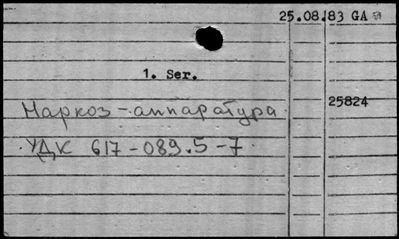 25.08.83 GA
1. Ser.
25824
Наркоз-аппаратура
УДК 617-089.5-7